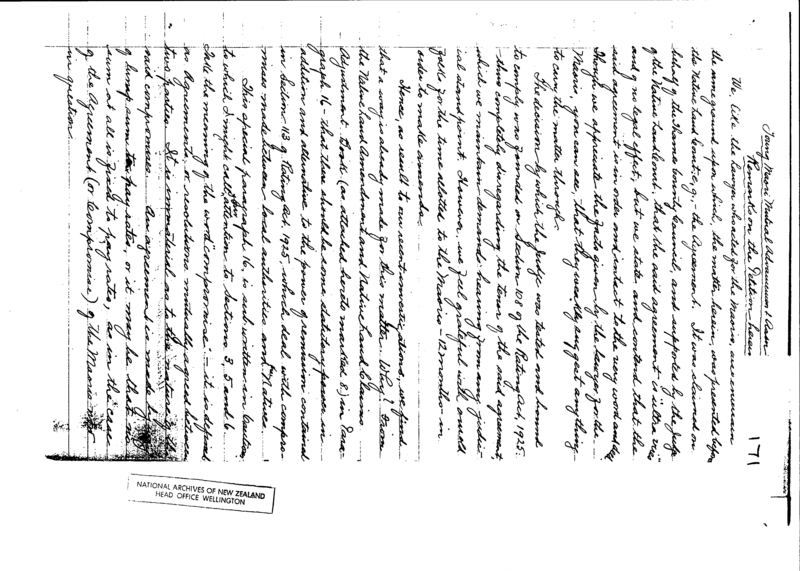 171
Young Maori Mutual Advancement Assn
Remarks on the Petition herein
We, like the lawyer for the Maoris, are unaware
the same ground upon which, the matter herein, was presented before
the Native Land Court e.g., the Agreement. It was claimed on
behalf of the County Council, and supported by the Judge
of the Native Land Court, that the said agreement is "ultra vires"
and of no legal effect, but we state and contend that the
said agreement is in order and intact to the very word and
Though we appreciate the given by the lawyer for the
Maoris, you can see, that they suggest anything
to carry the matter through.
The decision by which the Judge was and bound
to comply was grounded on Section 108 of the Rating Act, 1925.
thus completely disregarding the term of the said agreement,
which we maintain demands hearing from any judic-
ial standpoint. However, we feel grateful
for the time allotted to the Maoris - 12 months in
order to make amends.
Hence, as result to our recent investigations, we found
that a way is already made for this matter. Why! From
the Native Land Amendment and Native Land Claims
Adjustment Book (as attached hereto marked E) in Para-
graph 16 that there should be some statutory power in
addition and alternative to the power of remission contained
in Section 113 of Rating Act, 1925, which deal with compro-
mises made between local authorities and the Natives.
This special paragraph 16, is sub-written in
to which I might call your attention to Sections 3, 5 and 6
Take the meaning of the word "compromise": - it is defined
as Agreements, or resolutions mutually agreed between
two parties. It is immaterial as to the nature of the
said compromises. An agreement is made by
of lump sum to pay rates, or it may be that
sum at all is fixed to pay rates, as in the case
of the Agreement (or Compromise) of the Maoris
in question.
NATIONAL ARCHIVES OF NEW ZEALAND
HEAD OFFICE WELLINGTON